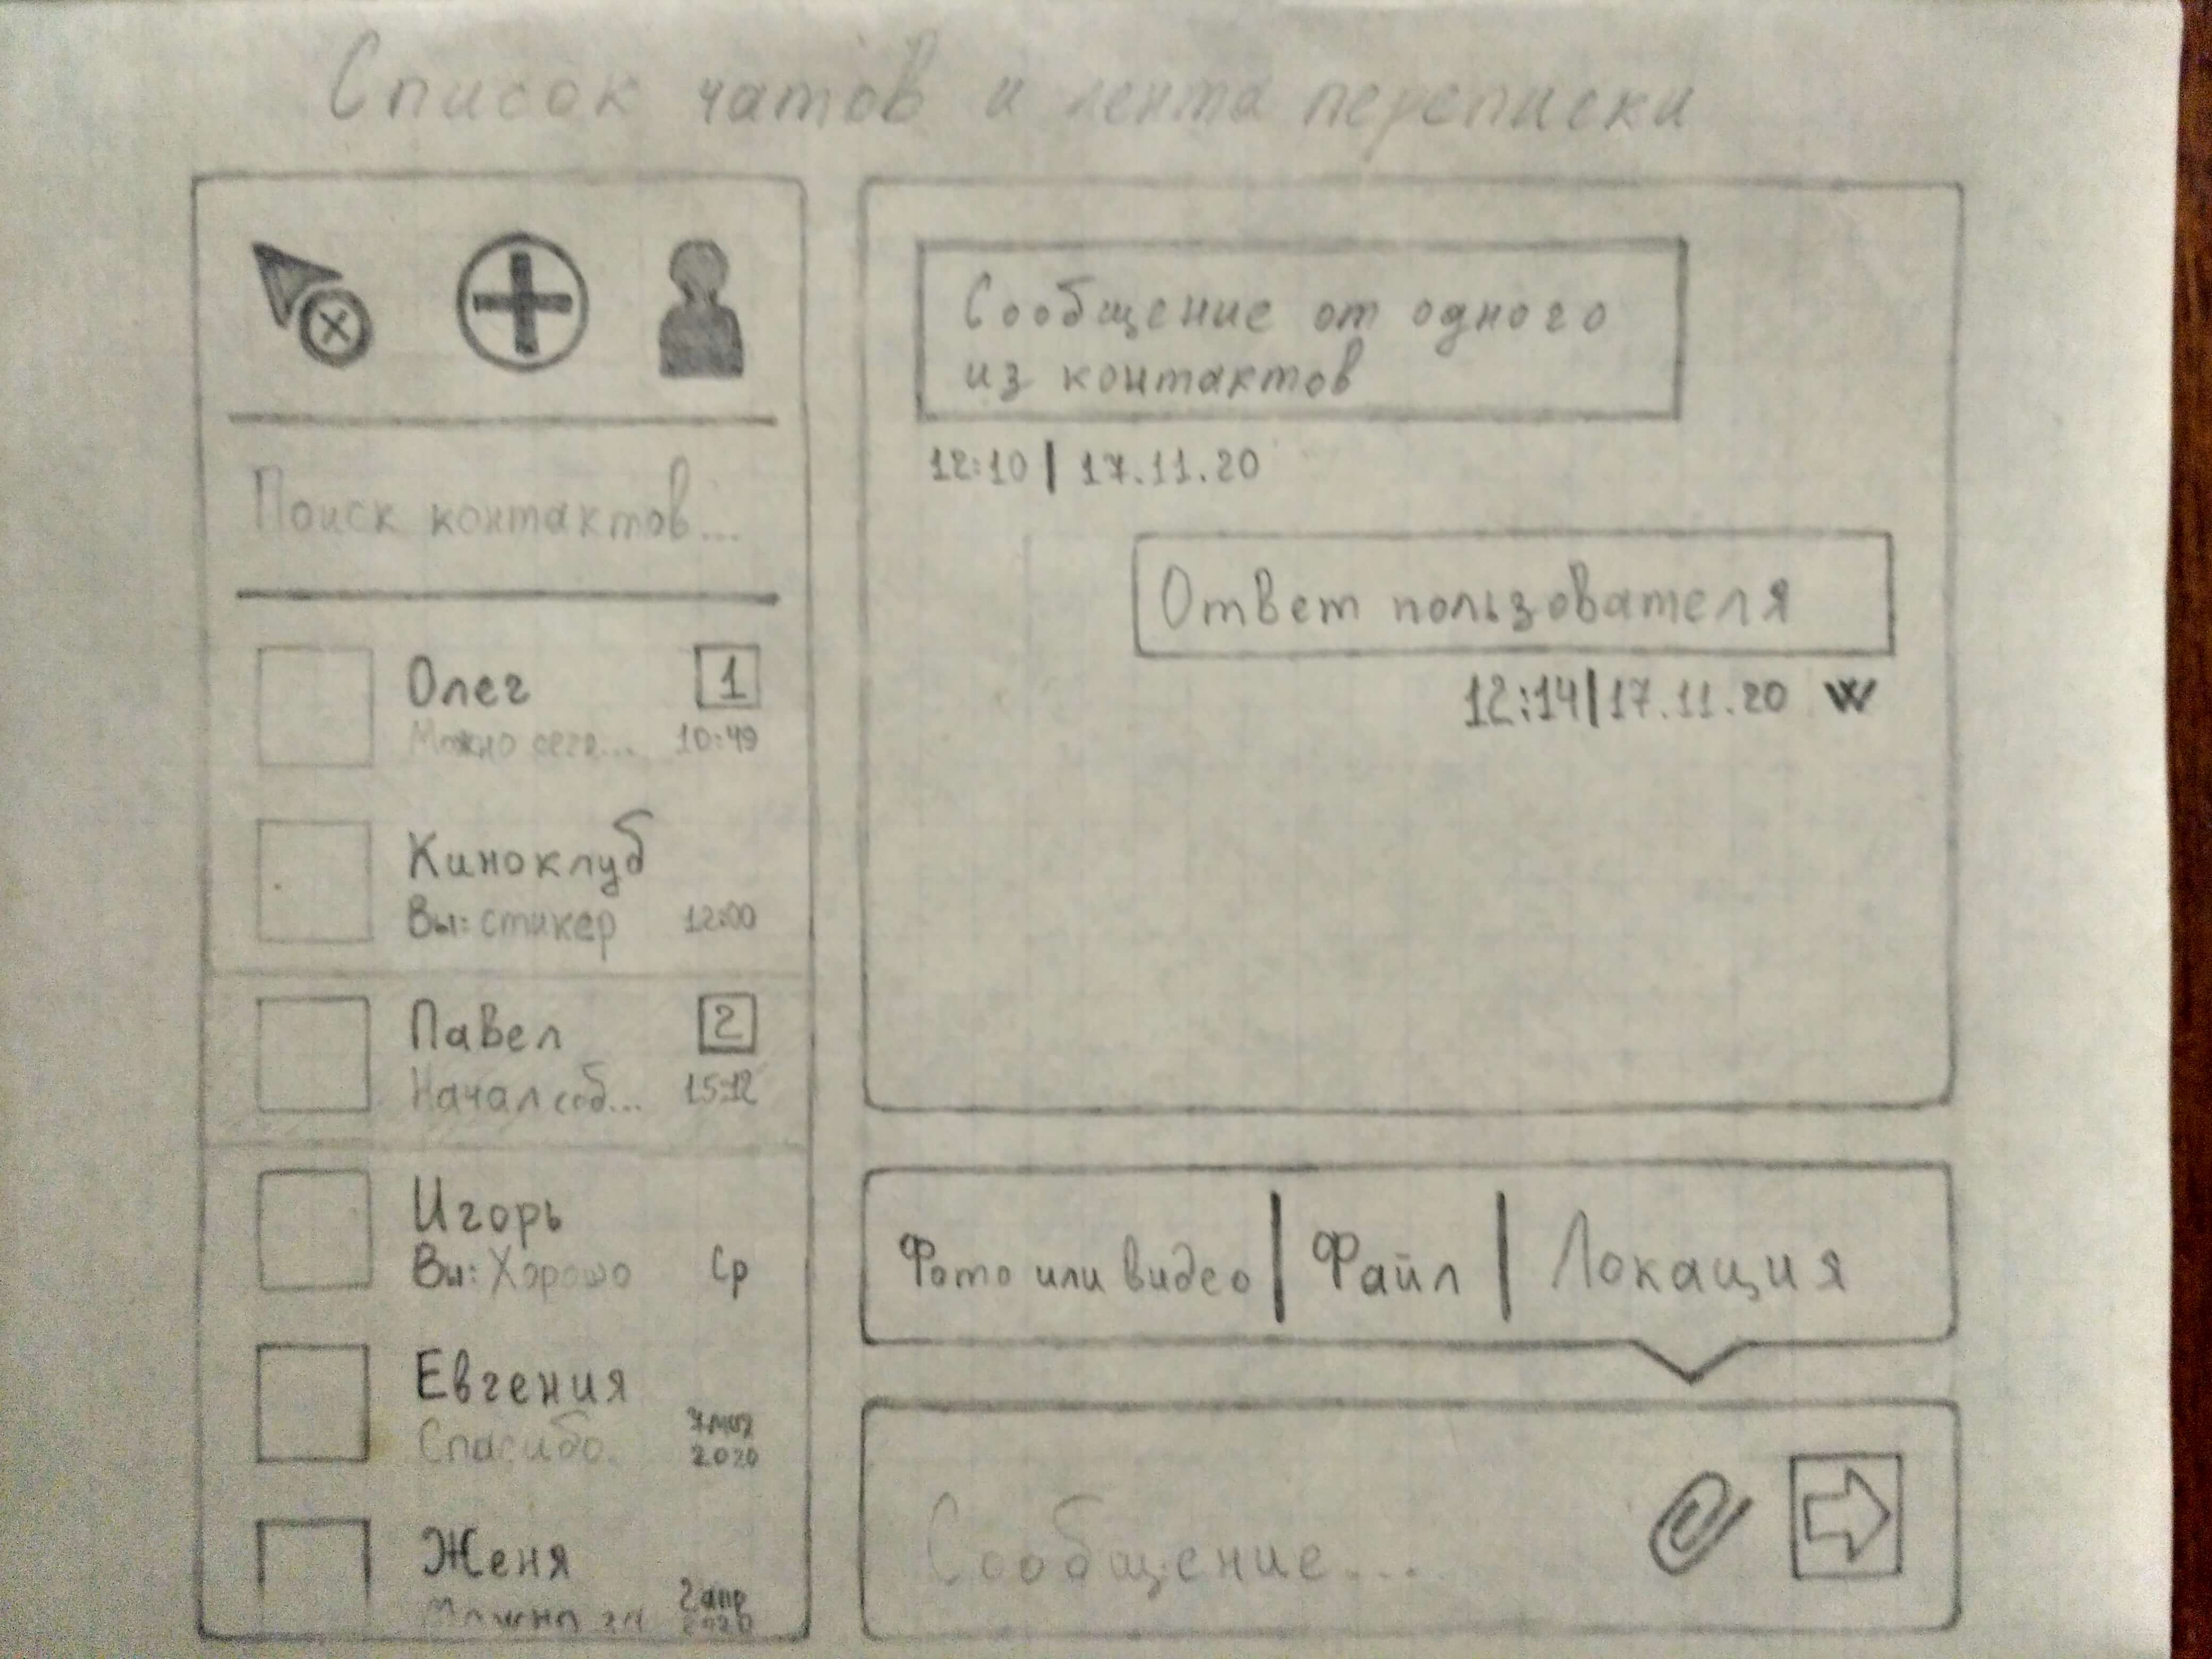 Список чатов и лента переписки
Поиск контактов...
Олег 1
Можно сего... 10:49
Киноклуб
Вы: стикер 12:00
Павел 2
Начал соб... 15:12
Игорь
Вы: Хорошо Ср
Евгения
Спасибо. 7 мая
2020
Женя
Можно 2 апр
2020
Сообщение от одного
из контактов
12:10 | 17.11.20
Ответ пользователя
12:14 | 17.11.20
Фото или видео | Файл | Локация
Сообщение...